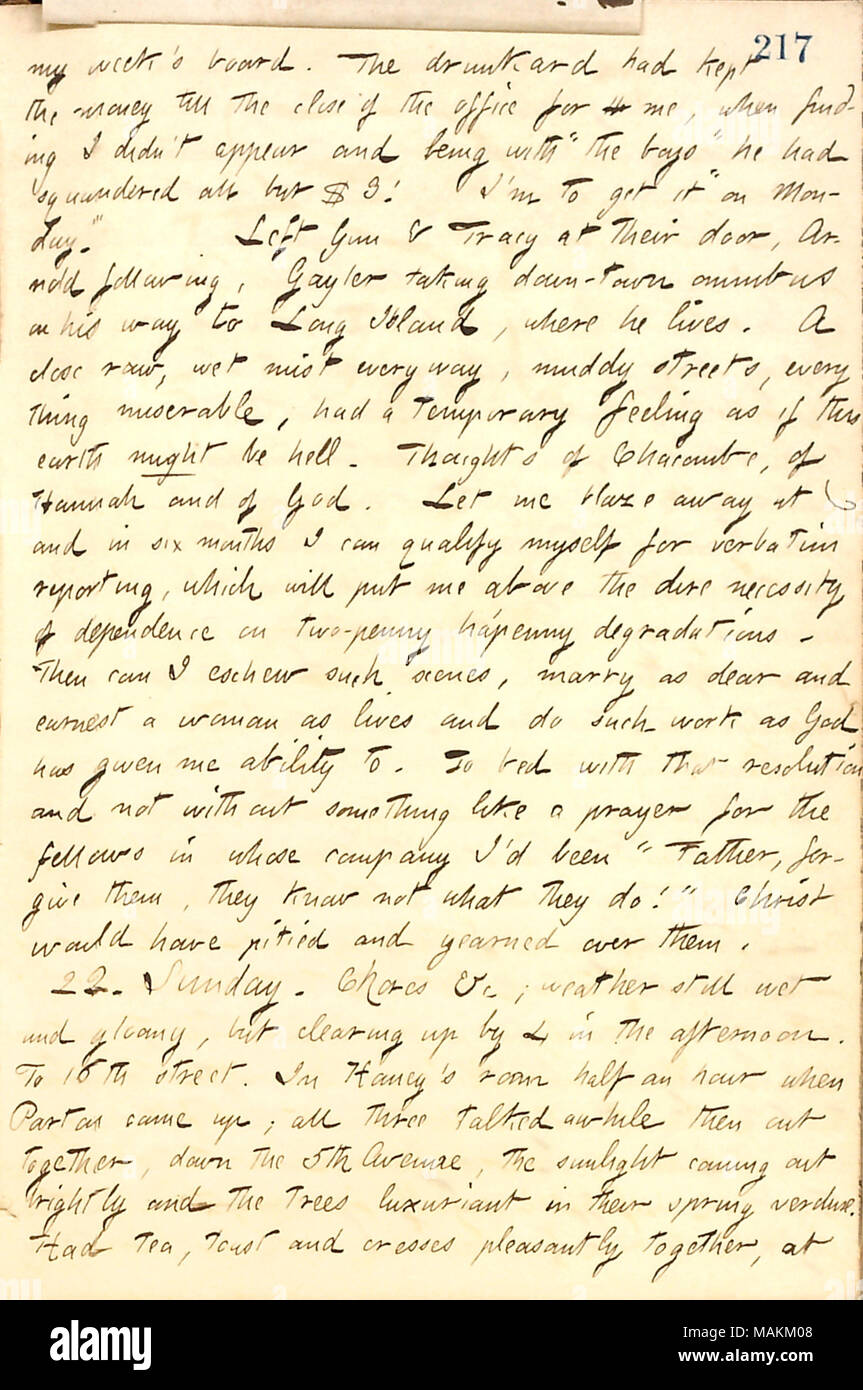 217
my week's board. The drunkard had kept
the money till the close of the office for me, when find-
ing I didn't appear and being with "the boys" he had
squandered all but $3! I'm to get it "on Mon-
day."  Left Gun & Tracy at their door, Ar-
nold following, Gayler taking down-town omnibus
on his way to Long Island, where he lives. A
close raw, wet mist everyway, muddy streets, every
thing miserable, had a temporary feeling as if this
earth might be hell. Thoughts of Chacombe, of
Hannah and of God. Let me blaze away at
and in six months I can qualify myself for verbatim
reporting, which will put me above the dire necessity
of dependence on two-penny ha'penny degradations.
Then can I eschew such scenes, marry as dear and
earnest a woman as lives and do such work as God
has given me ability to. To bed with that resolution
and not without something like a prayer for the
fellows in whose company I'd been "Father, for-
give them, they know not what they do!" Christ
would have pitied and yearned over them.
22. Sunday. Chores &c; weather still wet
and gloomy, but clearing up by 4 in the afternoon.
To 16th street. In Haney's room half an hour when
Parton came up; all three talked awhile then out
together, down the 5th Avenue, the sunlight coming out
brightly and the trees luxuriant in their spring verdure.
Had tea, toast and cresses pleasantly together, at
alamy
Image ID: MAKM08
www.alamy.com